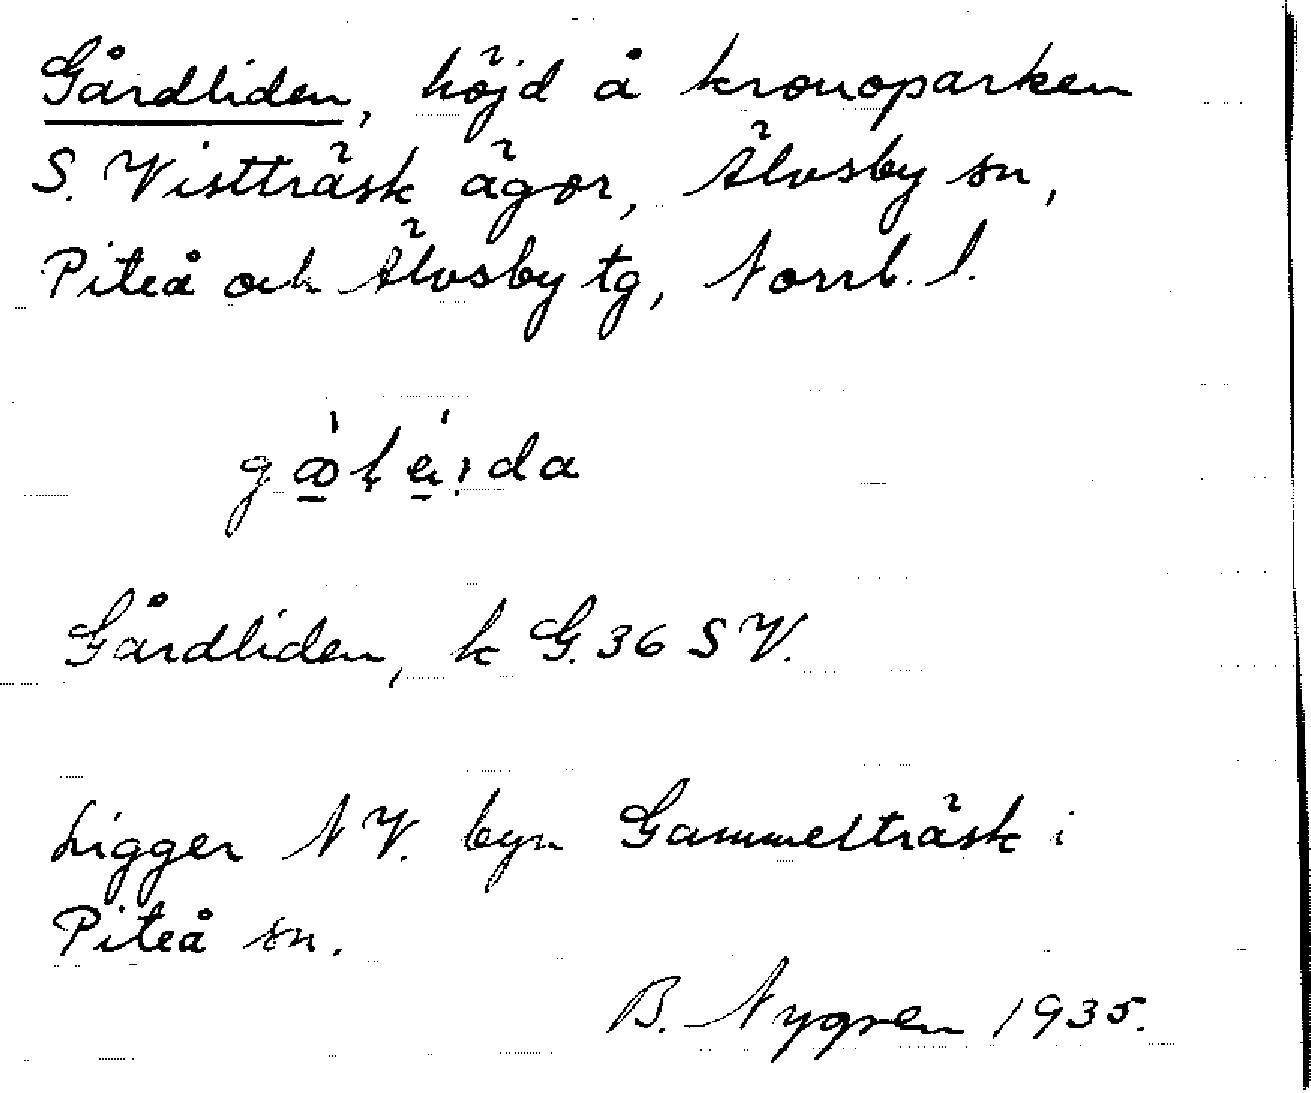 Gårdliden, höjd å kronoparken
S. Vistträsk ägor, Älvsby sn,
Piteå och Älvsby tg, Norrb. l.
Gårdliden, k G. 36 SV.
Ligger NV. byn Gammelträsk i
Piteå sn.
B. Nygren 1935.